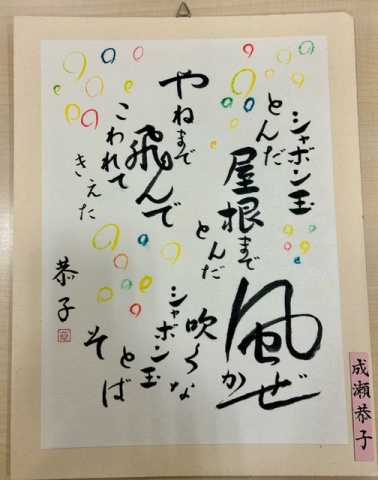 シャボン玉
とんだ
屋根まで
とんだ
やねまで
飛んで
こわれて
きえた
風
かぜ
吹くな
シャボン玉
とば
そ
恭子
成瀬恭子